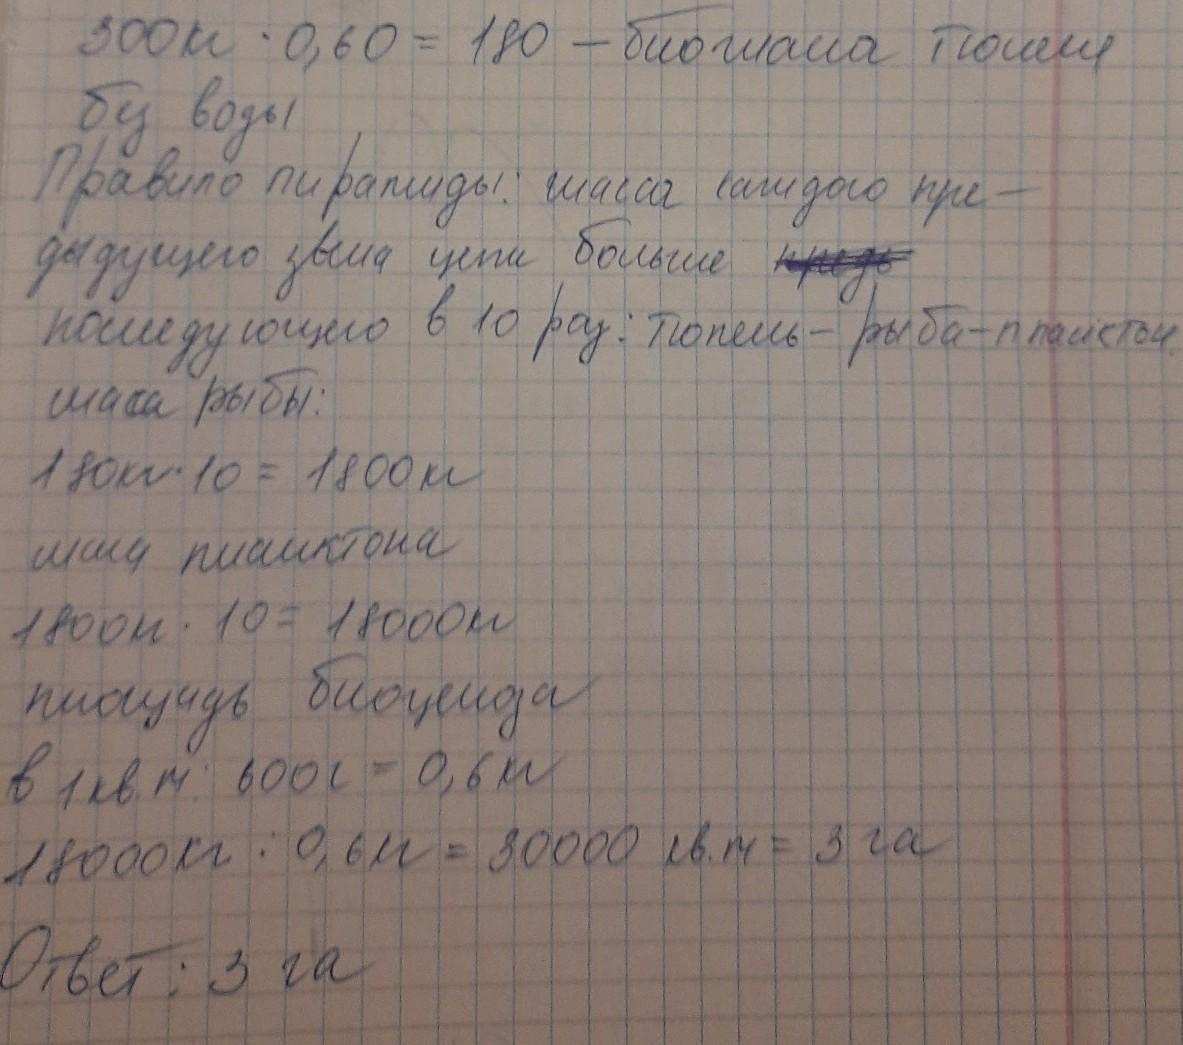 300кг · 0,60 = 180 – биомасса тюленя
без воды
Правило пирамиды: масса каждого пре-
дыдущего звена цепи больше
последующего в 10 раз: тюлень – рыба – планктон
масса рыбы:
180кг · 10 = 1800кг
масса планктона
1800кг · 10 = 18000кг
площадь биоценоза
в 1 кв.м: 600г = 0,6кг
18000кг : 0,6кг = 30000 кв.м = 3 га
Ответ: 3 га